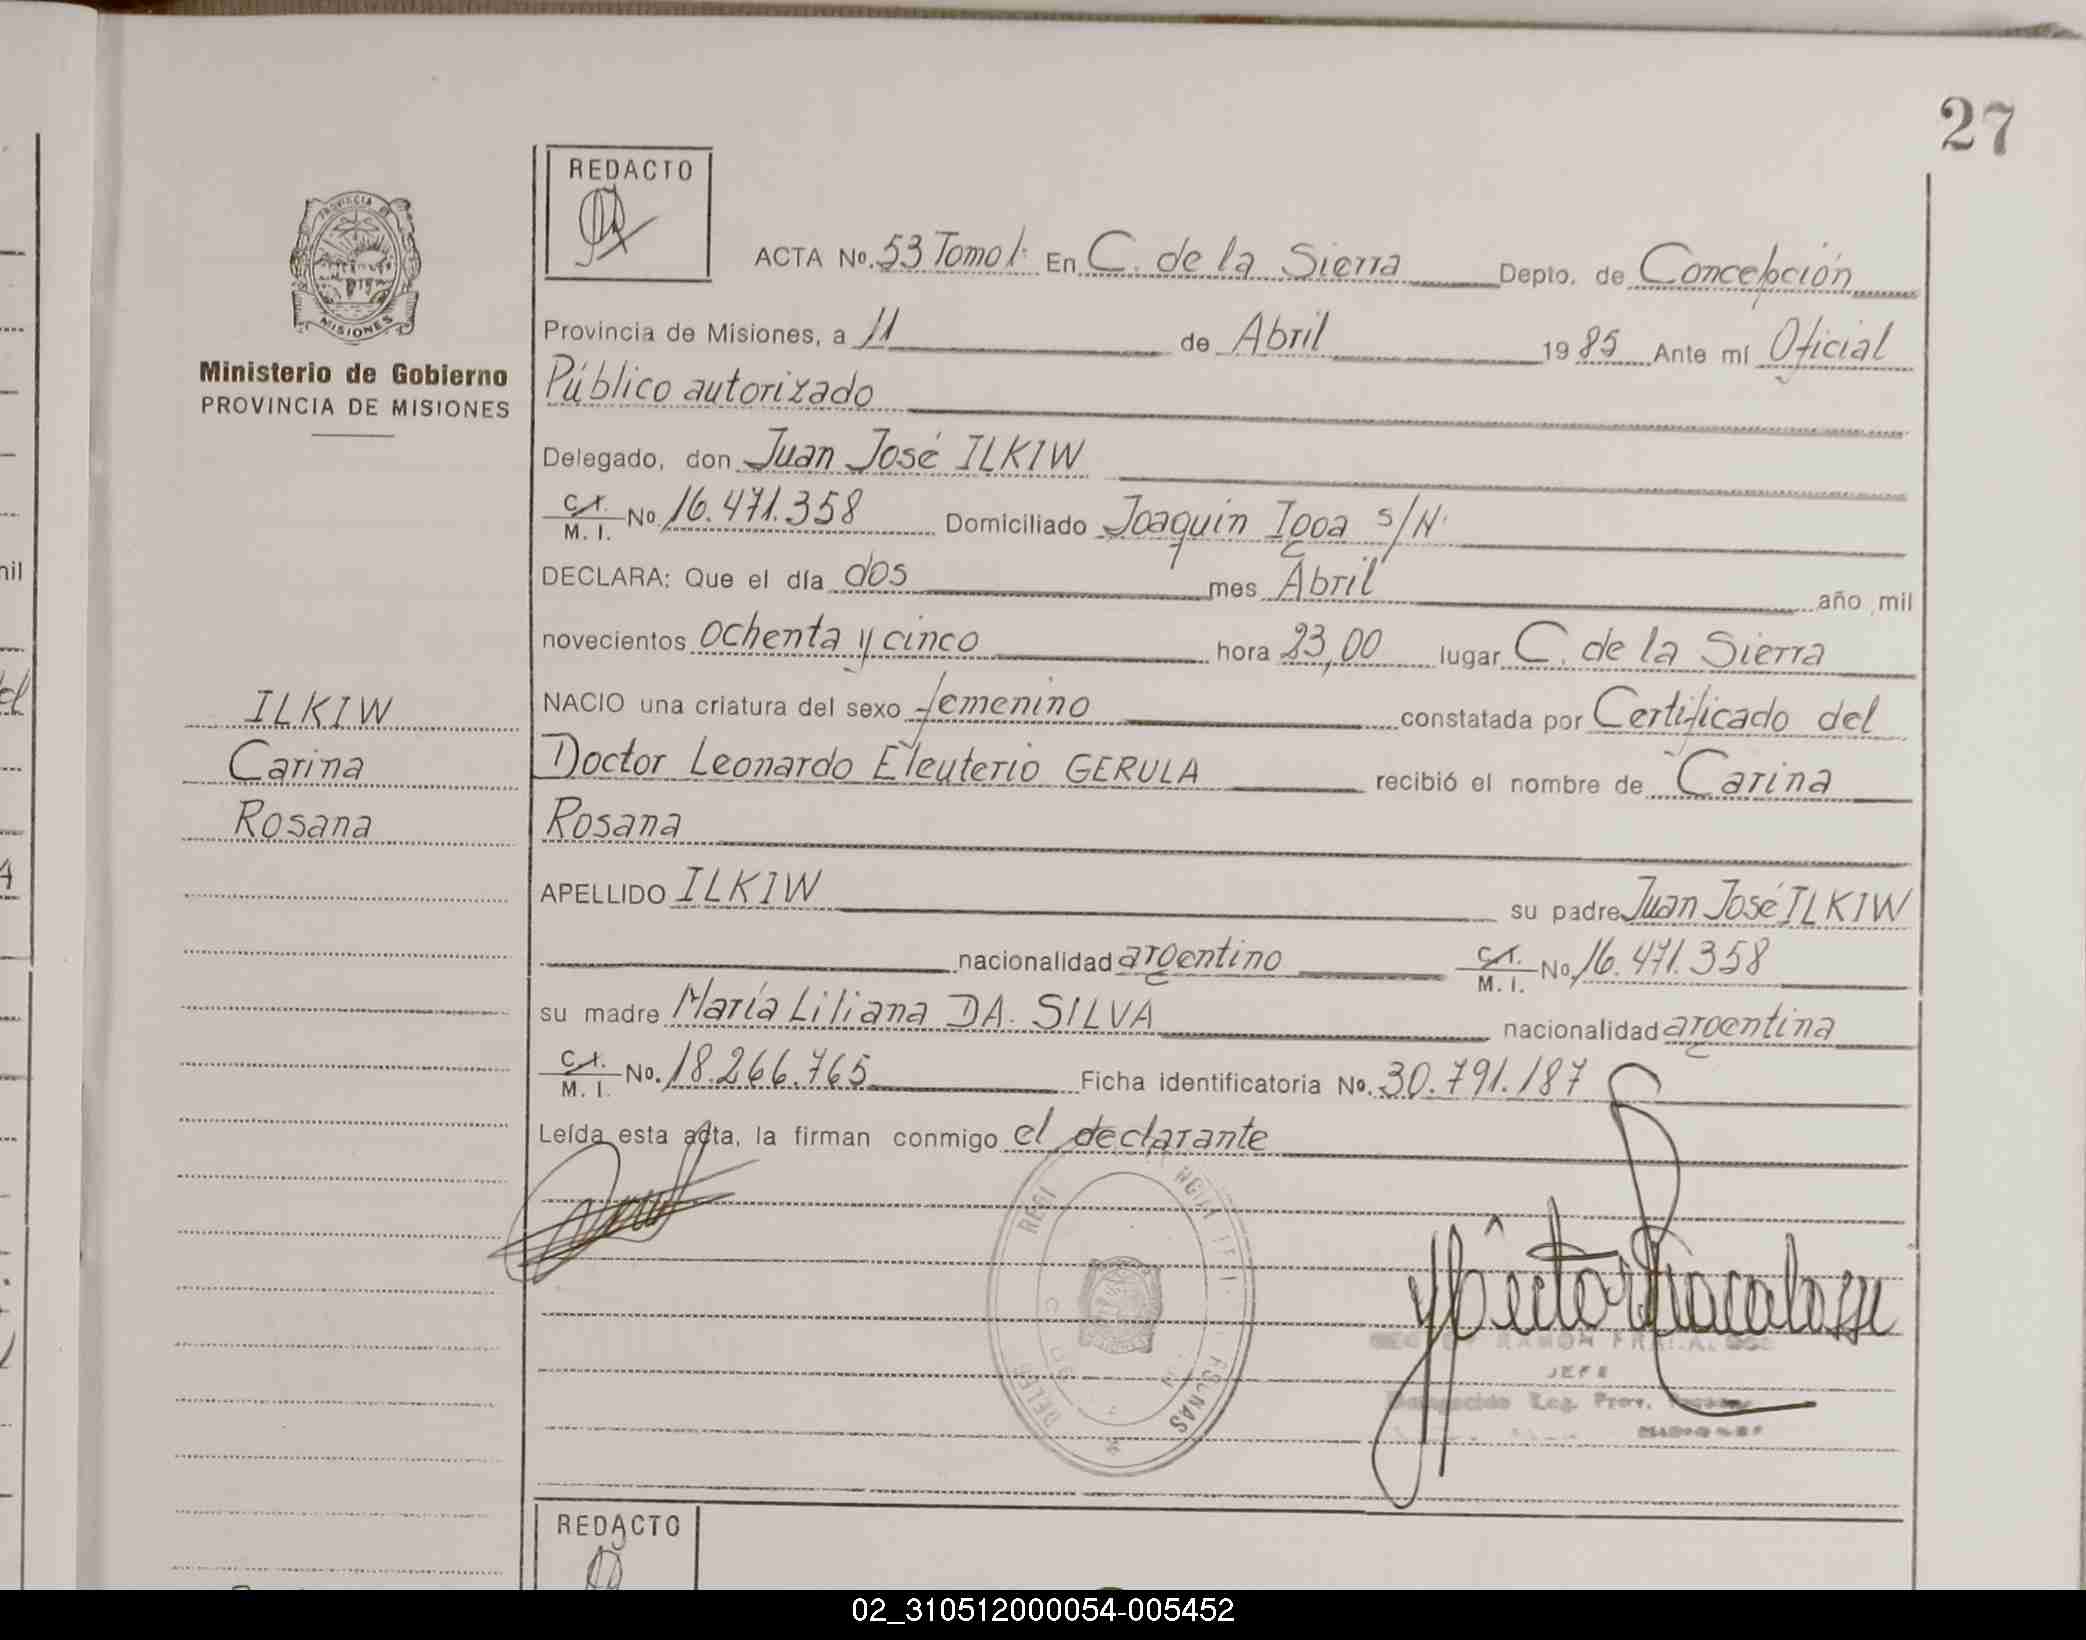 27
REDACTO
PROVINCIA DE
MISIONES
Ministerio de Gobierno
PROVINCIA DE MISIONES
ACTA No. 53 Tomo I. En C. de la Sierra Depto. de Concepción
Provincia de Misiones, a 11 de Abril 1985 Ante mí Oficial
Público autorizado
Delegado, don Juan José ILKIW
C.I. M. I. No. 16.471.358 Domiciliado Joaquín Igoa s/N.
DECLARA: Que el día dos mes Abril año mil
novecientos ochenta y cinco hora 23,00 lugar C. de la Sierra
NACIO una criatura del sexo femenino constatada por Certificado del
Doctor Leonardo Eleuterio GERULA recibió el nombre de Carina
Rosana
APELLIDO ILKIW su padre Juan José ILKIW
nacionalidad argentino C.I. M. I. No. 16.471.358
su madre María Liliana DA. SILVA nacionalidad argentina
C.I. M. I. No. 18.266.765 Ficha identificatoria No. 30.791.187
Leída esta acta, la firman conmigo el declarante
ILKIW
Carina
Rosana
RAMON
JEFE
Delegación Reg. Prov.
MISIONES
REDACTO
02_310512000054-005452